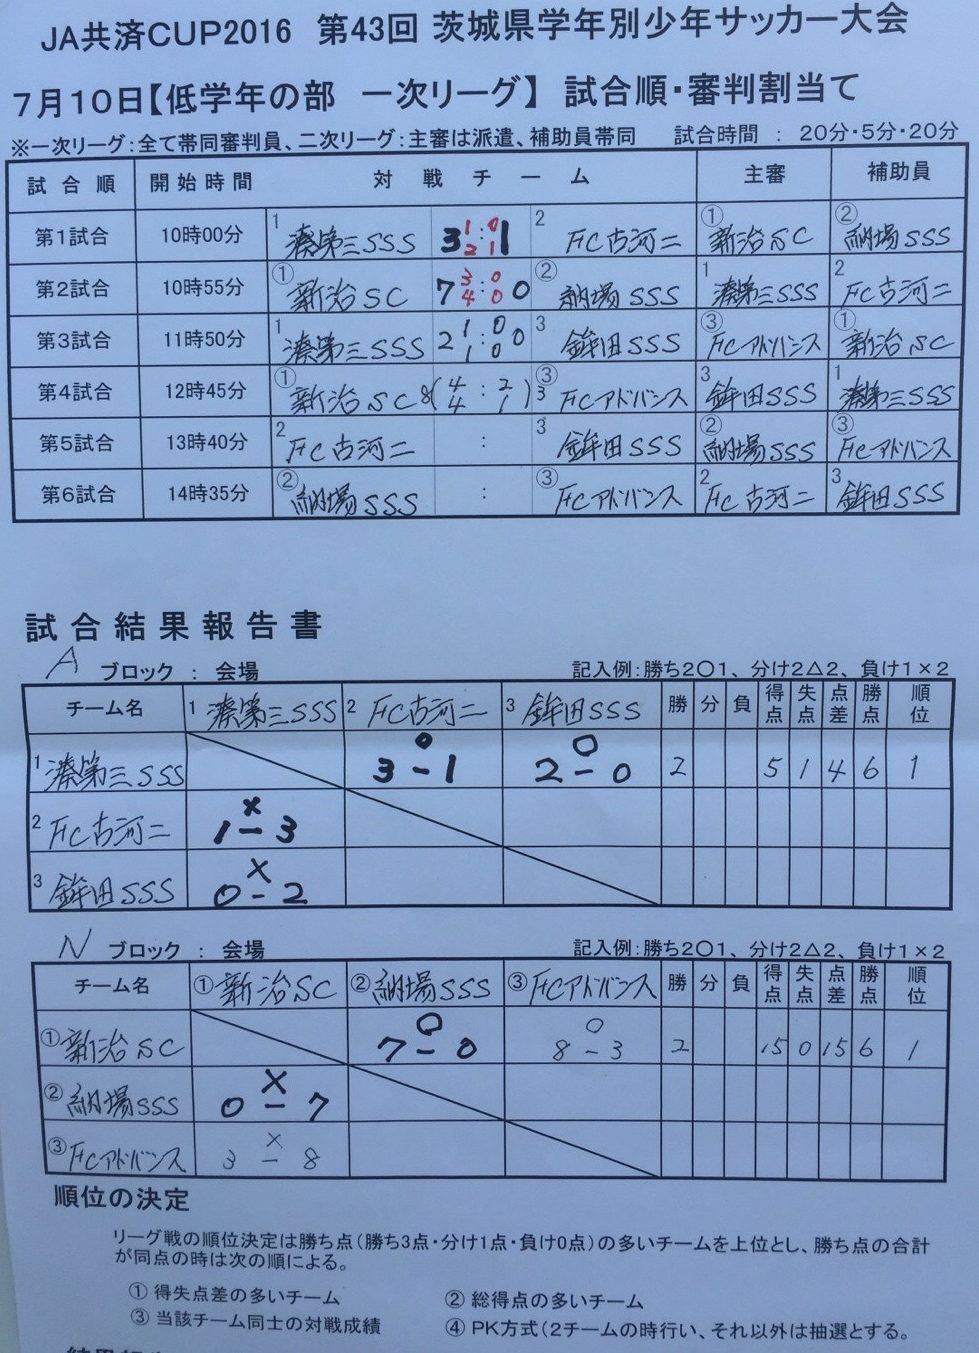 JA共済CUP2016 第43回 茨城県学年別少年サッカー大会
7月10日【低学年の部 一次リーグ】 試合順・審判割当て
※一次リーグ:全て帯同審判員、二次リーグ:主審は派遣、補助員帯同 試合時間 : 20分・5分・20分
試合順 開始時間 対戦チーム 主審 補助員
第1試合 10時00分 1 湊第三SSS 3 1:0 2 1 1 2 FC古河二 ① 新治SC ② 納場SSS
第2試合 10時55分 ① 新治SC 7 3:0 4 0 0 ② 納場SSS 1 湊第三SSS 2 FC古河二
第3試合 11時50分 1 湊第三SSS 2 1:0 1 0 0 3 鉾田SSS ③ FCアドバンス ① 新治SC
第4試合 12時45分 ① 新治SC 8( 4:2 4 1 )3 ③ FCアドバンス 3 鉾田SSS 1 湊第三SSS
第5試合 13時40分 2 FC古河二 : 3 鉾田SSS ② 納場SSS ③ FCアドバンス
第6試合 14時35分 ② 納場SSS : ③ FCアドバンス 2 FC古河二 3 鉾田SSS
試合結果報告書
A ブロック : 会場 記入例:勝ち2〇1、分け2△2、負け1×2
チーム名 1 湊第三SSS 2 FC古河二 3 鉾田SSS 勝 分 負 得点 失点 点差 勝点 順位
1 湊第三SSS ○ 3-1 ○ 2-0 2 5 1 4 6 1
2 FC古河二 × 1-3
3 鉾田SSS × 0-2
N ブロック : 会場 記入例:勝ち2〇1、分け2△2、負け1×2
チーム名 ①新治SC ②納場SSS ③FCアドバンス 勝 分 負 得点 失点 点差 勝点 順位
①新治SC ○ 7-0 ○ 8-3 2 15 0 15 6 1
②納場SSS × 0-7
③FCアドバンス × 3-8
順位の決定
リーグ戦の順位決定は勝ち点(勝ち3点・分け1点・負け0点)の多いチームを上位とし、勝ち点の合計
が同点の時は次の順による。
① 得失点差の多いチーム ② 総得点の多いチーム
③ 当該チーム同士の対戦成績 ④ PK方式(2チームの時行い、それ以外は抽選とする。